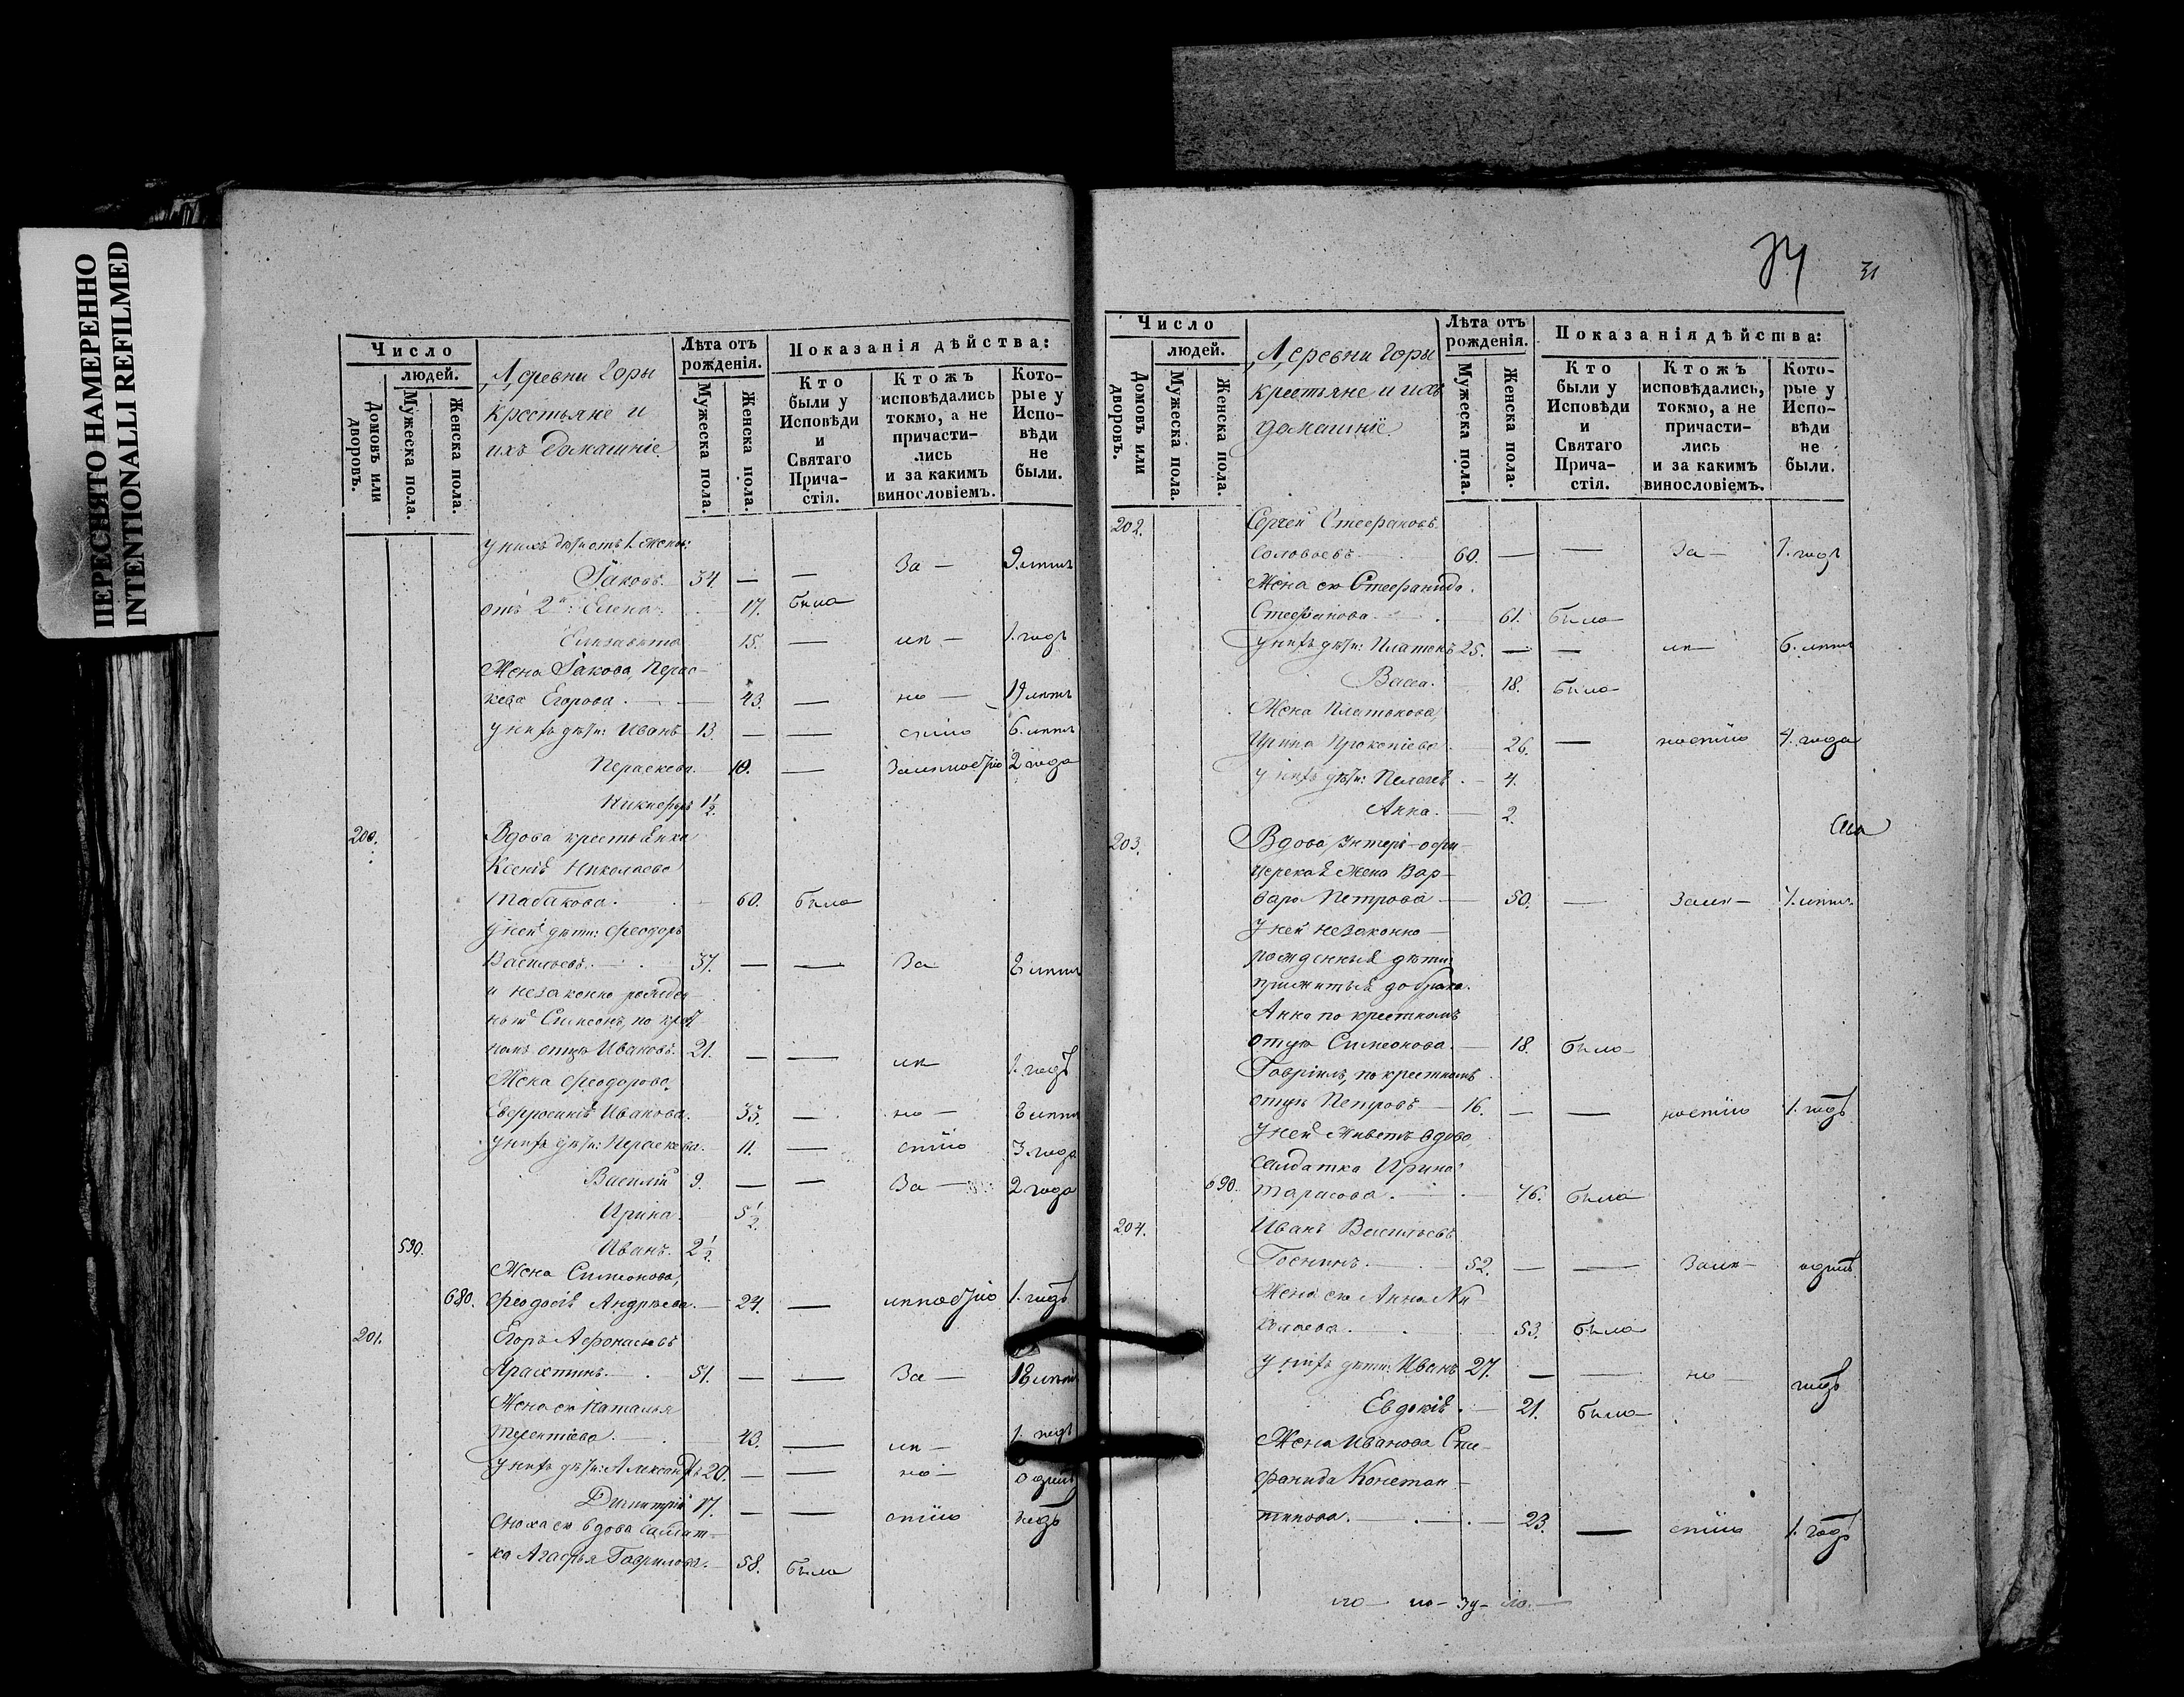 ПЕРЕСНЯТО НАМЕРЕННО
INTENTIONALLI REFILMED
Число
людей.
Домовъ или дворовъ.
Мужеска пола.
Женска пола.
Деревни Горы
крестьяне и
ихъ домашніе
Лѣта отъ рожденія.
Мужеска пола.
Женска пола.
Показанія дѣйства:
Кто были у Исповѣди и Святаго Прича-стія.
Ктожъ исповѣдались токмо, а не причасти-лись и за какимъ винословіемъ.
Кото-рые у Испо-вѣди не были.
у нихъ дѣти отъ 1. жены:
Іаковъ. 34. — — За — 9. лѣтъ
отъ 2й: Елена. 17. была
Елизавета 15. — лѣ — 1. годъ
Жена Іакова, Парас-
кева Егорова. 43. — но — 19 лѣтъ
у нихъ дѣти: Иванъ 13. — — стію 6. лѣтъ
Параскева. 10. — 2 года
Никифоръ 1½.
200. Вдова крестьянка
Ксенія Николаева
Табакова. 60. была
у ней дѣти: Феодоръ
Васильевъ. 37. — — За 8 лѣтъ
и незаконно рожден-
ный Симеонъ, по крест
номъ отцѣ Ивановъ. 21. — — лѣ 1. годъ
Жена Феодорова,
Евфросинія Иванова. 33. — но — 8 лѣтъ
у нихъ дѣти: Параскева. 11. — стію 3 года
Василій 9. — — За — 2 года
Ирина. 5½.
590. Иванъ. 2½.
Жена Симеонова,
680. Феодосія Андреева. 24. — 1. годъ
201. Егоръ Афонасьевъ
51. — — За — 18 лѣтъ
Жена его Наталья
Терентіева. 43. — лѣ — 1. годъ
у нихъ дѣти: Александръ 20. — — но — одинъ
Димитрій 17. — — стію годъ
сноха его вдова салдат-
ка Агафья Гаврилова. 58. была
31
Число
людей.
Домовъ или дворовъ.
Мужеска пола.
Женска пола.
Деревни Горы
крестьяне и ихъ
домашніе.
Лѣта отъ рожденія.
Мужеска пола.
Женска пола.
Показанія дѣйства:
Кто были у Исповѣди и Святаго Прича-стія.
Ктожъ исповѣдались, токмо, а не причасти-лись и за какимъ винословіемъ.
Кото-рые у Испо-вѣди не были.
202. Сергей Стефановъ
Соловьевъ 60. — — За — 1. годъ
Жена его Стефанида
Стефанова 61. была
у нихъ дѣти: Платонъ 25. — — лѣ — 6. лѣтъ
Васса. 18. была
Жена Платонова,
Ирина Прокопіева. 26. — ностію 4. года
у нихъ дѣти: Пелагея. 4.
Анна. 2.
203. Вдова Унтеръ-офи-
церская жена Вар-
вара Петрова 50. — Залѣ — 7. лѣтъ
у ней незаконно-
рожденныя дѣти
прижитыя до брака.
Анна по крестномъ
отцѣ Симеонова. 18. была
Гавріилъ, по крестномъ
отцѣ Петровъ 16. — — ностію 1. годъ
у ней живетъ вдова,
салдатка Ирина
690. Тарасова. 76. была
204. Иванъ Васильевъ
52. — — Залѣ — одинъ
Жена его Анна Ни-
колаева. 53. была
у нихъ дѣти: Иванъ 27. — — но годъ
Евдокія. 21. была
Жена Иванова Сте-
фанида Констан-
тинова. 23. — стію 1. годъ